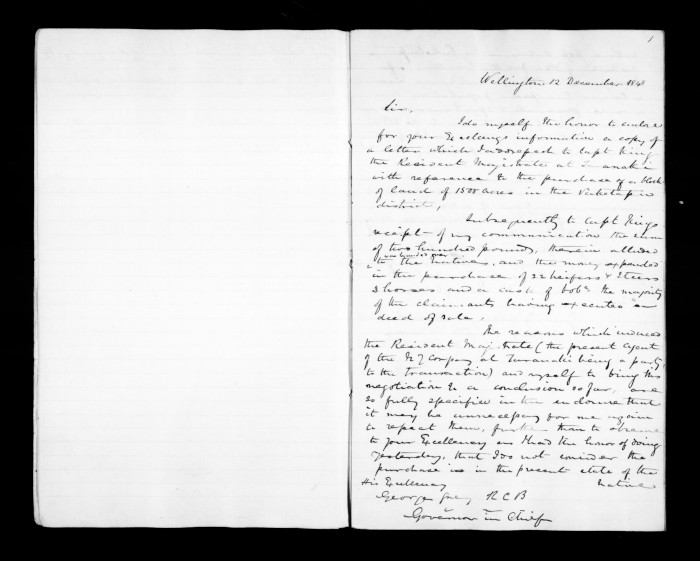 1
Wellington 12 December 1848
Sir,
I do myself the honor to enclose
for your Excellency's information a copy of
a letter which I addressed to Capt King
the Resident Magistrate at Taranaki
with reference to the purchase of a block
of land of 1500 acres in the
district,
Subsequently to Capt Kings
receipt of my communication the sum
of two hundred pounds, therein alluded
was handed over
to the natives, and the money expended
in the purchase of 32 heifers & 3 steers
3 horses and a cask of tobo. the majority
of the claimants having executed a
deed of sale.
The reasons which induced
the Resident Magistrate (the present Agent
of the NZ Company at Taranaki being a party
to the transaction) and myself to bring this
negotiation to a conclusion so far, are
so fully specified in the enclosure that
it may be unnecessary for me again
to repeat them, further than to observe
to your Excellency as I had the honor of doing
yesterday, that I do not consider the
purchase is in the present state of the
His Excellency native
George Grey KCB
Governor in Chief